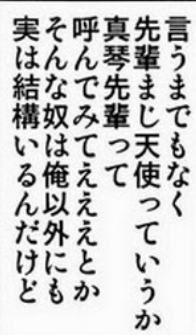 言うまでもなく
先輩まじ天使っていうか
真琴先輩って
呼んでみてえええとか
そんな奴は俺以外にも
実は結構いるんだけど